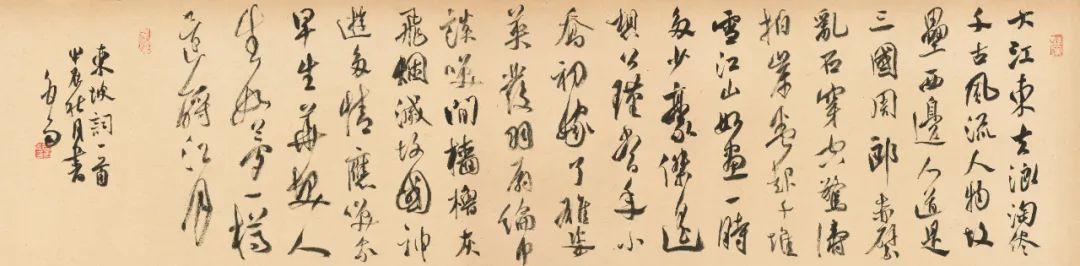 大江東去浪淘尽
千古風流人物故
壘西邊人道是
三國周郎赤壁
亂石穿空驚濤
拍岸卷起千堆
雪江山如畫一時
多少豪傑遙
想公瑾當年小
喬初嫁了雄姿
英發羽扇綸巾
談笑間檣櫓灰
飛烟滅故國神
遊多情應笑我
早生華髮人
生如夢一樽
還酹江月
東坡詞一首
甲辰秋月書